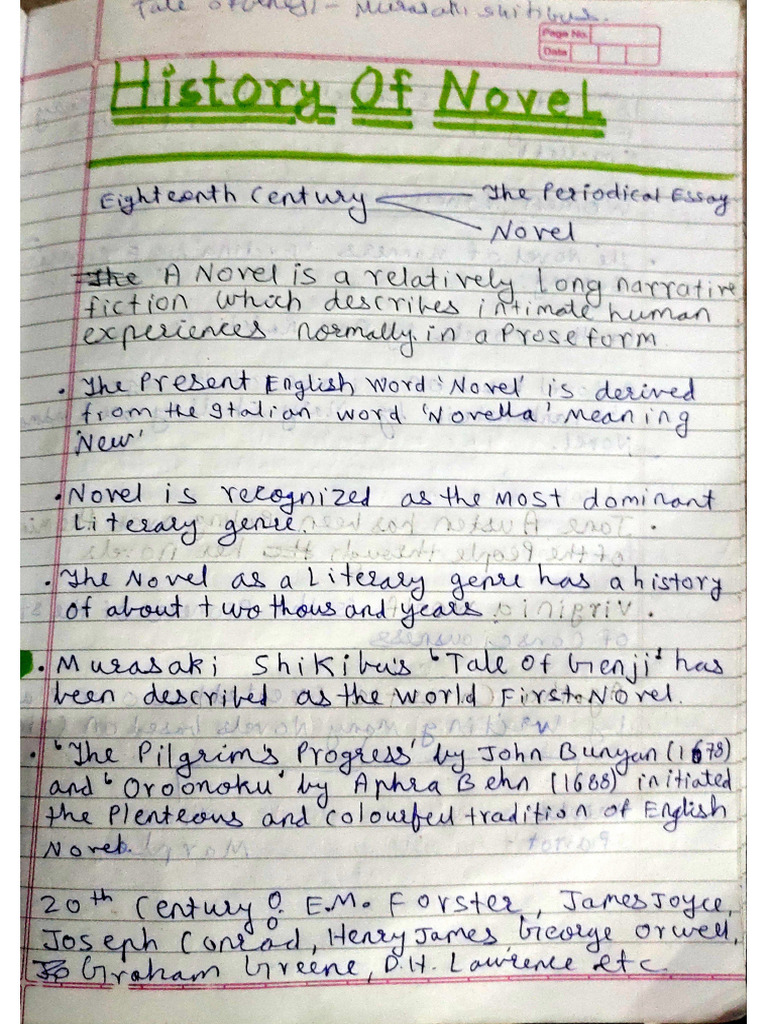 Tale of Genji - Murasaki Shikibus.
Page No.
Date
History Of Novel
Eighteenth Century
The Periodical Essay
Novel
The A Novel is a relatively long narrative
fiction which describes intimate human
experiences normally in a Prose form
• The Present English Word 'Novel' is derived
from the Italian word 'Novella' Meaning
'New'
• Novel is recognized as the most dominant
Literary genre.
• The Novel as a Literary genre has a history
of about two thousand years.
• Murasaki Shikibu's 'Tale of Genji' has
been described as the World First Novel.
• 'The Pilgrim's Progress' by John Bunyan (1678)
and 'Oroonoku' by Aphra Behn (1688) initiated
the Plenteous and colourful tradition of English
Novel.
20th Century: E.M. Forster, James Joyce,
Joseph Conrad, Henry James, George Orwell,
Graham Greene, D.H. Lawrence etc